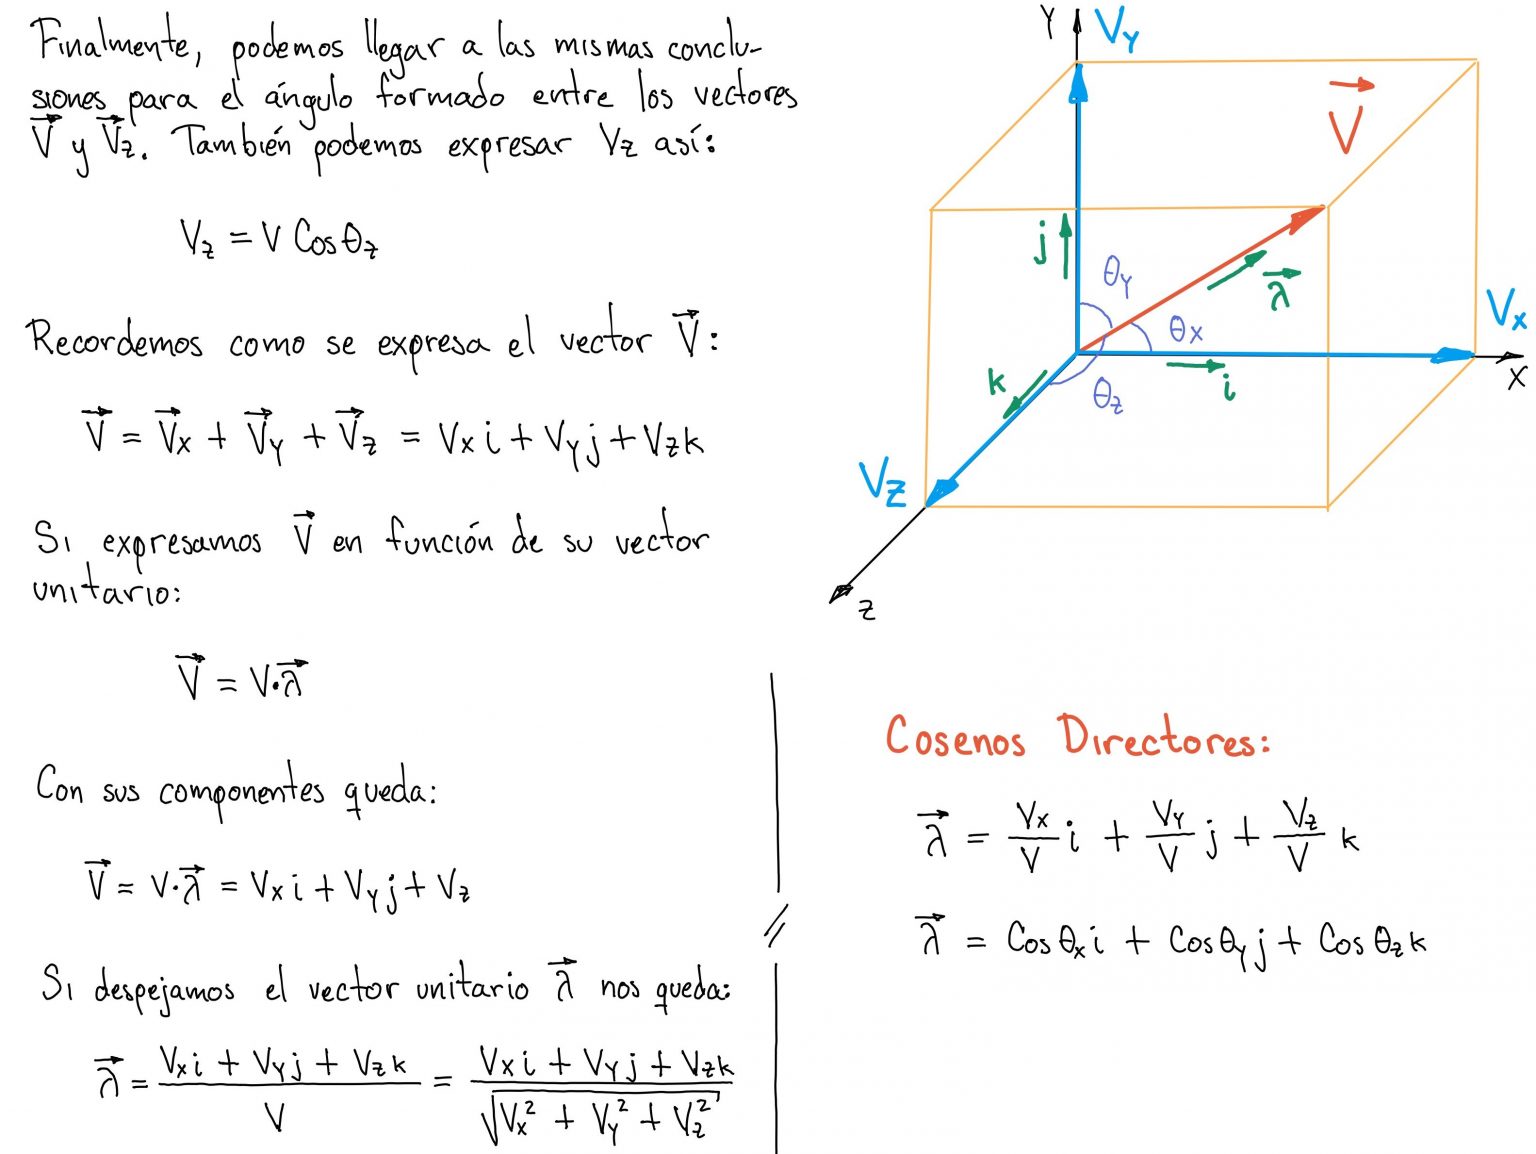 Finalmente, podemos llegar a las mismas conclu-
siones para el ángulo formado entre los vectores
V⃗ y V⃗z. También podemos expresar Vz así:
Vz = V Cosθz
Recordemos como se expresa el vector V⃗:
V⃗ = V⃗x + V⃗y + V⃗z = Vx i + Vy j + Vz k
Si expresamos V⃗ en función de su vector
unitario:
V⃗ = V·λ⃗
Con sus componentes queda:
V⃗ = V·λ⃗ = Vx i + Vy j + Vz
Si despejamos el vector unitario λ⃗ nos queda:
λ⃗ = (Vx i + Vy j + Vz k) / V = (Vx i + Vy j + Vz k) / √(Vx² + Vy² + Vz²)
Y
Vy
V⃗
j
θy
λ⃗
Vx
θx
k
i
X
θz
Vz
z
Cosenos Directores:
λ⃗ = Vx/V i + Vy/V j + Vz/V k
λ⃗ = Cosθx i + Cosθy j + Cosθz k